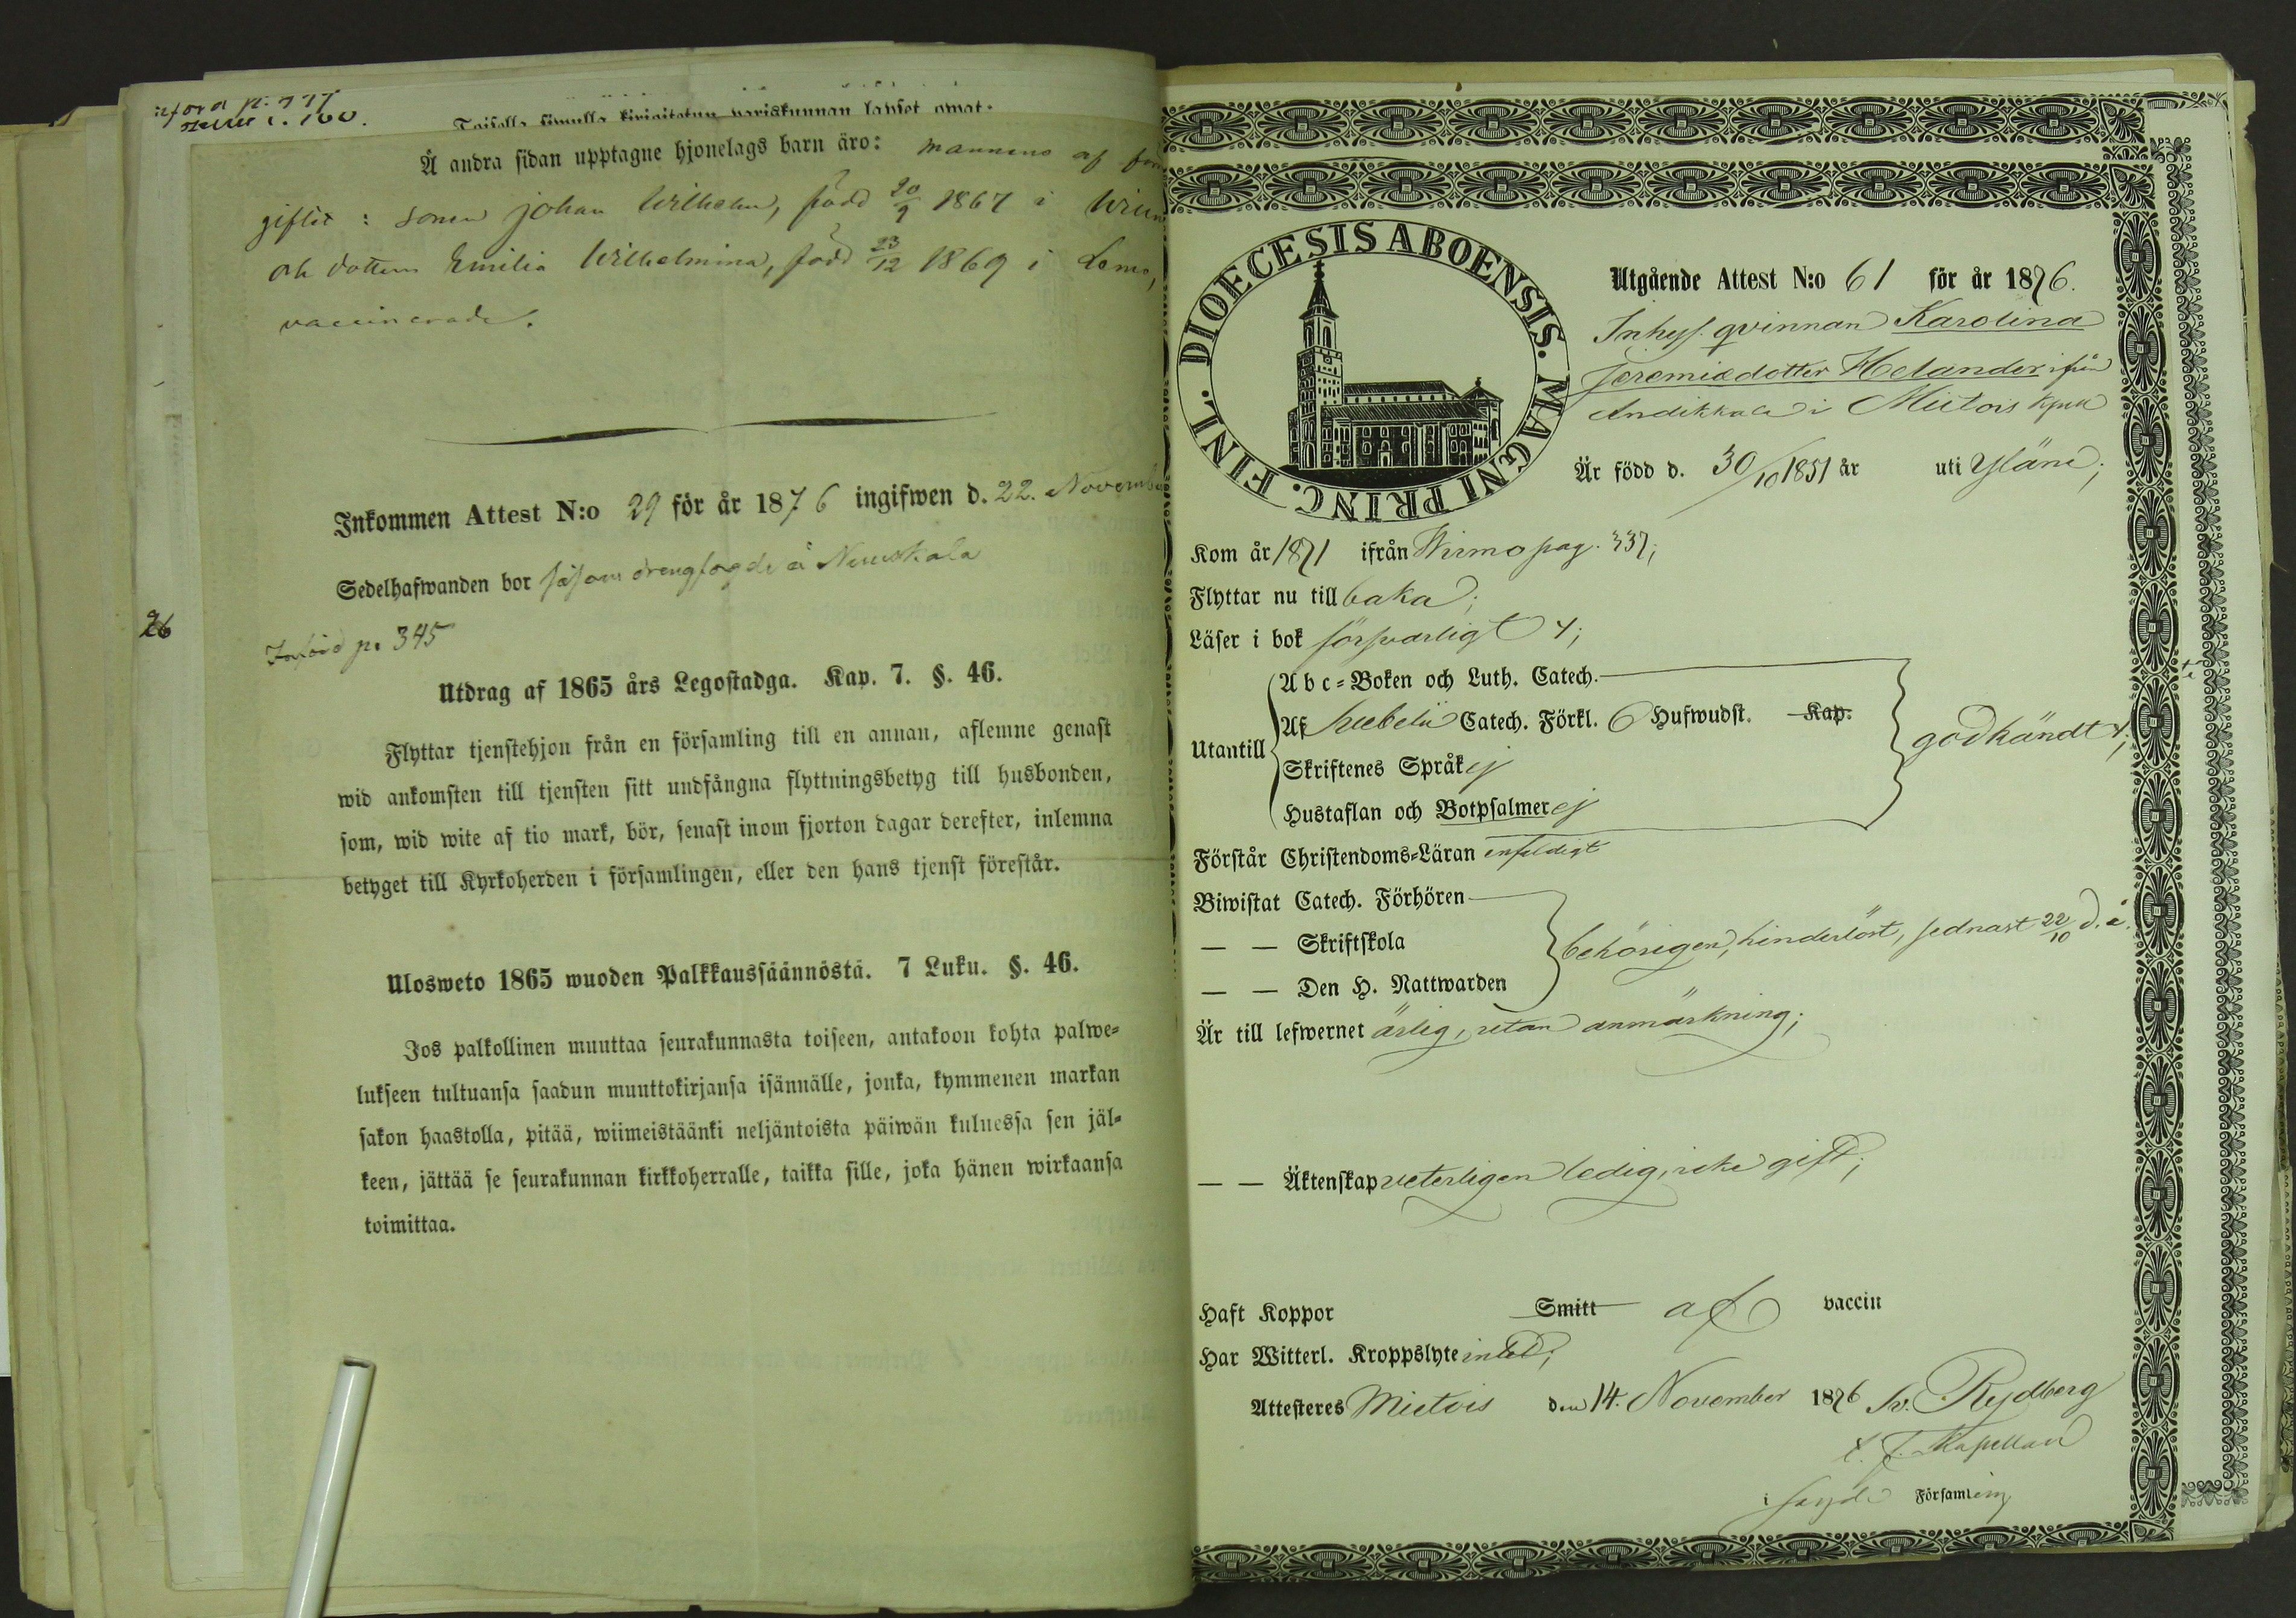 införd p. 777
Toisella siwulla kirjoitetun pariskunnan lapset owat:
Å andra sidan upptagne hjonelags barn äro: mannens af
giftet: sonen Johan Wilhelm, född 20/9 1867 i
och dottern Emilia Wilhelmina, född 23/12 1869 i Lemo,
vaccinerade.
Inkommen Attest N:o 29 för år 1876 ingifwen d. 22. November
Sedelhafwanden bor såsom drengfogde å Nemskala
26
Införd p. 345
Utdrag af 1865 års Legostadga. Kap. 7. §. 46.
Flyttar tjenstehjon från en församling till en annan, aflemne genast
wid ankomsten till tjensten sitt undfångna flyttningsbetyg till husbonden,
som, wid wite af tio mark, bör, senast inom fjorton dagar derefter, inlemna
betyget till Kyrkoherden i församlingen, eller den hans tjenst förestår.
Ulosweto 1865 wuoden Palkkaussäännöstä. 7 Luku. §. 46.
Jos palkollinen muuttaa seurakunnasta toiseen, antakoon kohta palwe-
lukseen tultuansa saadun muuttokirjansa isännälle, jonka, kymmenen markan
sakon haastolla, pitää, wiimeistäänki neljäntoista päiwän kuluessa sen jäl-
keen, jättää se seurakunnan kirkkoherralle, taikka sille, joka hänen wirkaansa
toimittaa.
FINL. DIOECESIS ABOENSIS. MAGNI PRINC.
Utgående Attest N:o 61 för år 1876.
Inhys. qvinnan Karolina
Jeremiædotter Helander ifrån
Andikkala i Mietois kpell
Är född d. 30/10 1851 år uti Yläne;
Kom år 1871 ifrån Wirmo pag. 337;
Flyttar nu till baka;
Läser i bok försvarligt;
Abc-Boken och Luth. Catech.
Utantill
Af Svebelii Catech. Förkl. 6 Hufwudst. Kap.
godkändt;
Skriftenes Språk ej
Hustaflan och Botpsalmer ej
Förstår Christendoms-Läran enfaldigt
Biwistat Catech. Förhören
— — Skriftskola
behörigen, hinderlöst, sednast 22/10 d. å.
— — Den H. Nattwarden
Är till lefwernet ärlig, utan anmärkning;
— — Äktenskap veterligen ledig, icke gift;
Haft Koppor Smitt af vaccin
Har Witterl. Kroppslyte intet;
Attesteres Mietois den 14. November 1876 Rydberg
t. f. Kapellan
i sagde Församling